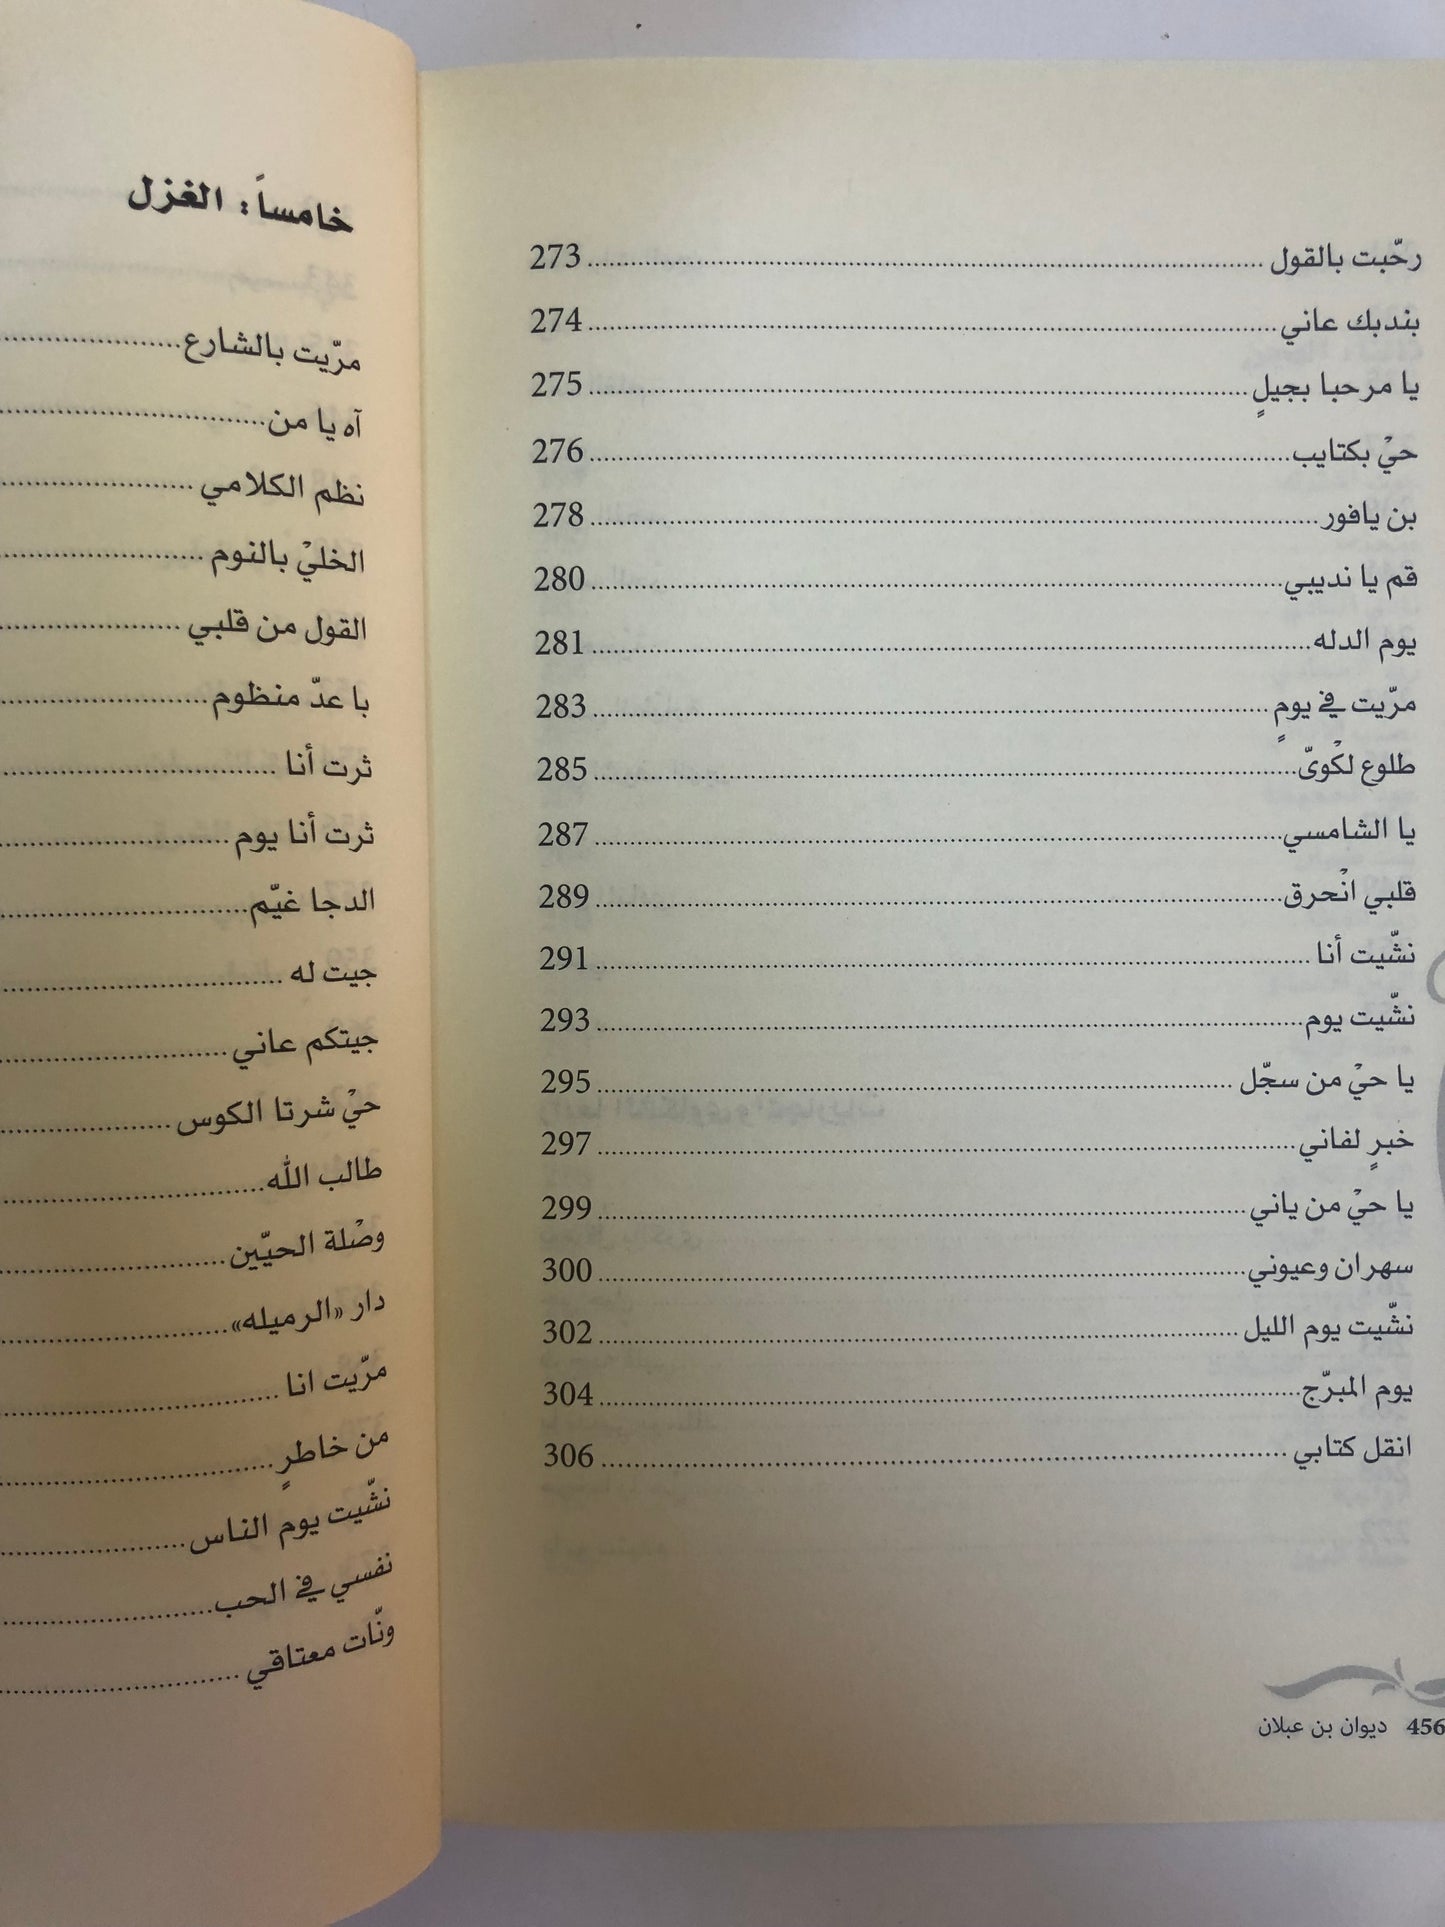 رحّبت بالقول ........ 273
بندبك عاني ........ 274
يا مرحبا بجيلٍ ........ 275
حيْ بكتايب ........ 276
بن يافور ........ 278
قم يا نديبي ........ 280
يوم الدله ........ 281
مرّيت في يومٍ ........ 283
طلوع لكْوىّ ........ 285
يا الشامسي ........ 287
قلبي انْحرق ........ 289
نشّيت أنا ........ 291
نشّيت يوم ........ 293
يا حيْ من سجّل ........ 295
خبرٍ لفاني ........ 297
يا حيْ من ياني ........ 299
سهران وعيوني ........ 300
نشّيت يوم الليل ........ 302
يوم المبرّج ........ 304
انقل كتابي ........ 306
456 ديوان بن عبلان
خامساً: الغزل
مرّيت بالشارع ........
آه يا من ........
نظم الكلامي ........
الخليْ بالنوم ........
القول من قلبي ........
با عدّ منظوم ........
ثرت أنا ........
ثرت أنا يوم ........
الدجا غيّم ........
جيت له ........
جيتكم عاني ........
حيْ شرتا الكوس ........
طالب الله ........
وصْلة الحيّين ........
دار «الرميله» ........
مرّيت انا ........
من خاطرٍ ........
نشّيت يوم الناس ........
نفسي في الحب ........
ونّات معتاقي ........